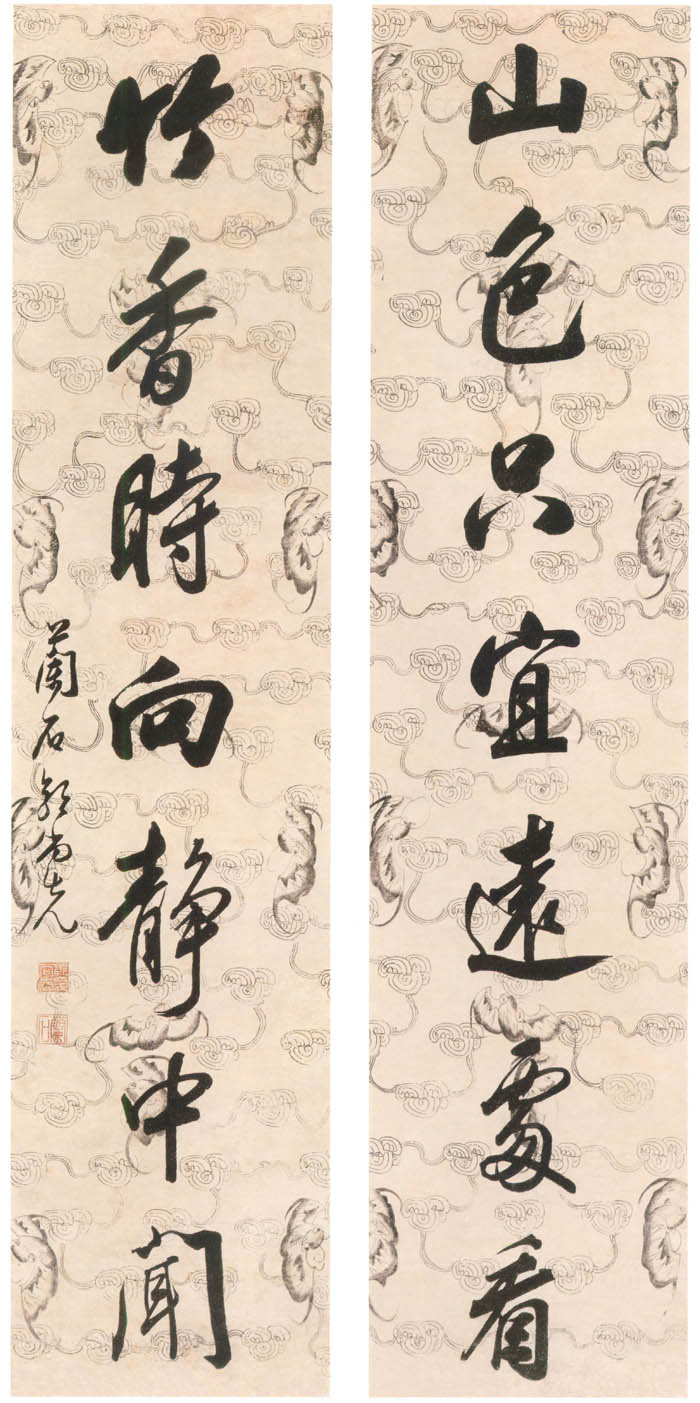 山色只宜遠處看
竹香時向靜中聞
蘭石郭尚先